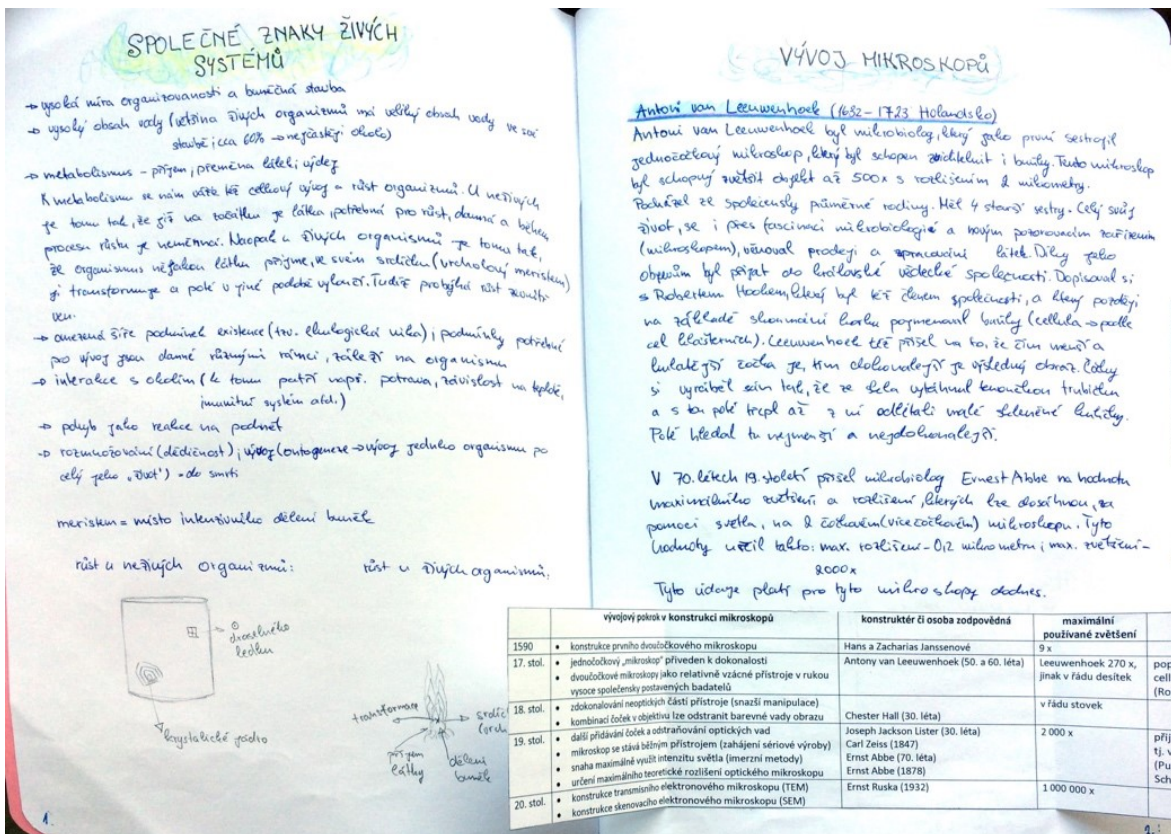 SPOLEČNÉ ZNAKY ŽIVÝCH
SYSTÉMŮ
→ vysoká míra organizovanosti a buněčná stavba
→ vysoký obsah vody (většina živých organizmů má veliký obsah vody ve své
stavbě; cca 60% → nejčastěji okolo)
→ metabolismus - příjem, přeměna látek; výdej
K metabolismu se nám váže též celkový vývoj a růst organizmů. U neživých
je tomu tak, že již na začátku je látka, potřebná pro růst, danná a během
procesu růstu je neměnná. Naopak u živých organismů je tomu tak,
že organismus nějakou látku přijme, ve svém srdíčku (vrcholový meristem)
ji transformuje a poté v jiné podobě vyloučí. Tudíž probíhá růst zevnitř
ven.
→ omezená šíře podmínek existence (tzv. ekologická nika); podmínky potřebné
pro vývoj jsou danné různými rámci, záleží na organismu
→ interakce s okolím (k tomu patří např. potrava, závislost na teplotě,
imunitní systém atd.)
→ pohyb jako reakce na podnět
→ rozmnožování (dědičnost); vývoj (ontogeneze → vývoj jednoho organismu po
celý jeho „život") - do smrti
meristem = místo intenzivního dělení buněk
růst u neživých organizmů:
růst u živých organismů:
draselného
ledku
krystalické jádro
transformace
srdíč
příjem
látky
dělení
buněk
1.
VÝVOJ MIKROSKOPŮ
Antoni van Leeuwenhoek (1632 - 1723 Holandsko)
Antoni van Leeuwenhoek byl mikrobiolog, který jako první sestrojil
jednočočkový mikroskop, který byl schopen zviditelnit i buňky. Tento mikroskop
byl schopný zvětšit objekt až 500x s rozlišením 2 mikometry.
Pocházel ze společensky průměrné rodiny. Měl 4 starší sestry. Celý svůj
život, se i přes fascinaci mikrobiologie a novým pozorovacím zařízením
(mikroskopem), věnoval prodeji a zpracování látek. Díky jeho
objevům byl přijat do královské vědecké společnosti. Dopisoval si
s Robertem Hookem, který byl též členem společnosti, a který později
na základě zkoumání korku pojmenoval buňky (cellula → podle
cel klášterních). Leeuwenhoek též přišel na to, že čím menší a
kulatější čočka je, tím dokonalejší je výsledný obraz. Čočky
si vyráběl sám tak, že ze skla vytáhnul tenoučkou trubičku
a s tou poté třepl až z ní odlétali malé skleněné kuličky.
Poté hledal tu nejmenší a nejdokonalejší.
V 70. letech 19. století přišel mikrobiolog Ernest Abbe na hodnotu
maximálního zvětšení a rozlišení, kterých lze dosáhnou, za
pomoci světla, na 2 čočkovém (více čočkovém) mikroskopu. Tyto
hodnoty určil takto: max. rozlišení - 0,2 mikrometru; max. zvětšení -
2000x
Tyto údaje platí pro tyto mikroskopy dodnes.
vývojový pokrok v konstrukci mikroskopů konstruktér či osoba zodpovědná maximální
používané zvětšení
1590 • konstrukce prvního dvoučočkového mikroskopu Hans a Zacharias Janssenové 9 x
17. stol. • jednočočkový „mikroskop" přiveden k dokonalosti Antony van Leeuwenhoek (50. a 60. léta) Leeuwenhoek 270 x, pop
• dvoučočkové mikroskopy jako relativně vzácné přístroje v rukou jinak v řádu desítek cell
vysoce společensky postavených badatelů (Ro
18. stol. • zdokonalování neoptických částí přístroje (snazší manipulace) v řádu stovek
• kombinací čoček v objektivu lze odstranit barevné vady obrazu Chester Hall (30. léta)
19. stol. • další přidávání čoček a odstraňování optických vad Joseph Jackson Lister (30. léta) 2 000 x
• mikroskop se stává běžným přístrojem (zahájení sériové výroby) Carl Zeiss (1847) přij
• snaha maximálně využít intenzitu světla (imerzní metody) Ernst Abbe (70. léta) tj. v
• určení maximálního teoretické rozlišení optického mikroskopu Ernst Abbe (1878) (Pu
Sch
20. stol. • konstrukce transmisního elektronového mikroskopu (TEM) Ernst Ruska (1932) 1 000 000 x
• konstrukce skenovacího elektronového mikroskopu (SEM)